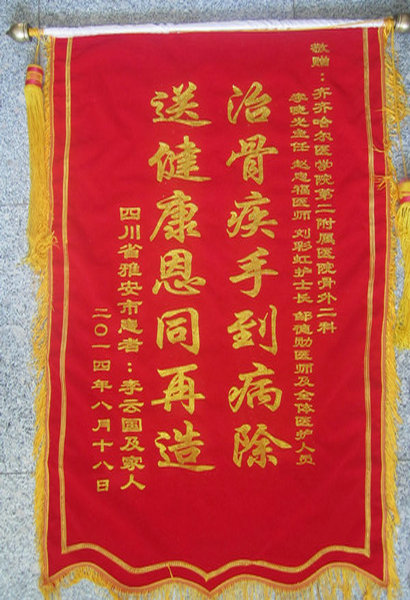 敬赠：齐齐哈尔医学院第二附属医院骨外二科
李晓光主任 赵忠福医师 刘彩虹护士长 邹德勋医师及全体医护人员
治骨疾手到病除
送健康恩同再造
四川省雅安市患者：李云国及家人
二〇一四年八月十八日